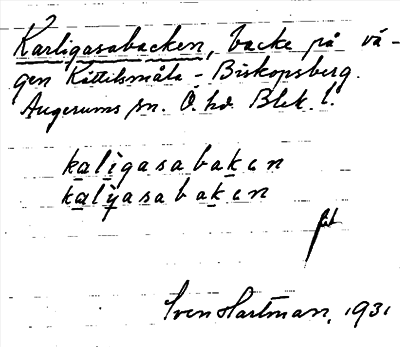 Karligasabacken, backe på vä-
gen Kättilsmåla - Biskopsberg.
Augerums sn. Ö. hd. Blek. l.
kaligasabakɛn
kalijasabakɛn
Sven Hartman, 1931